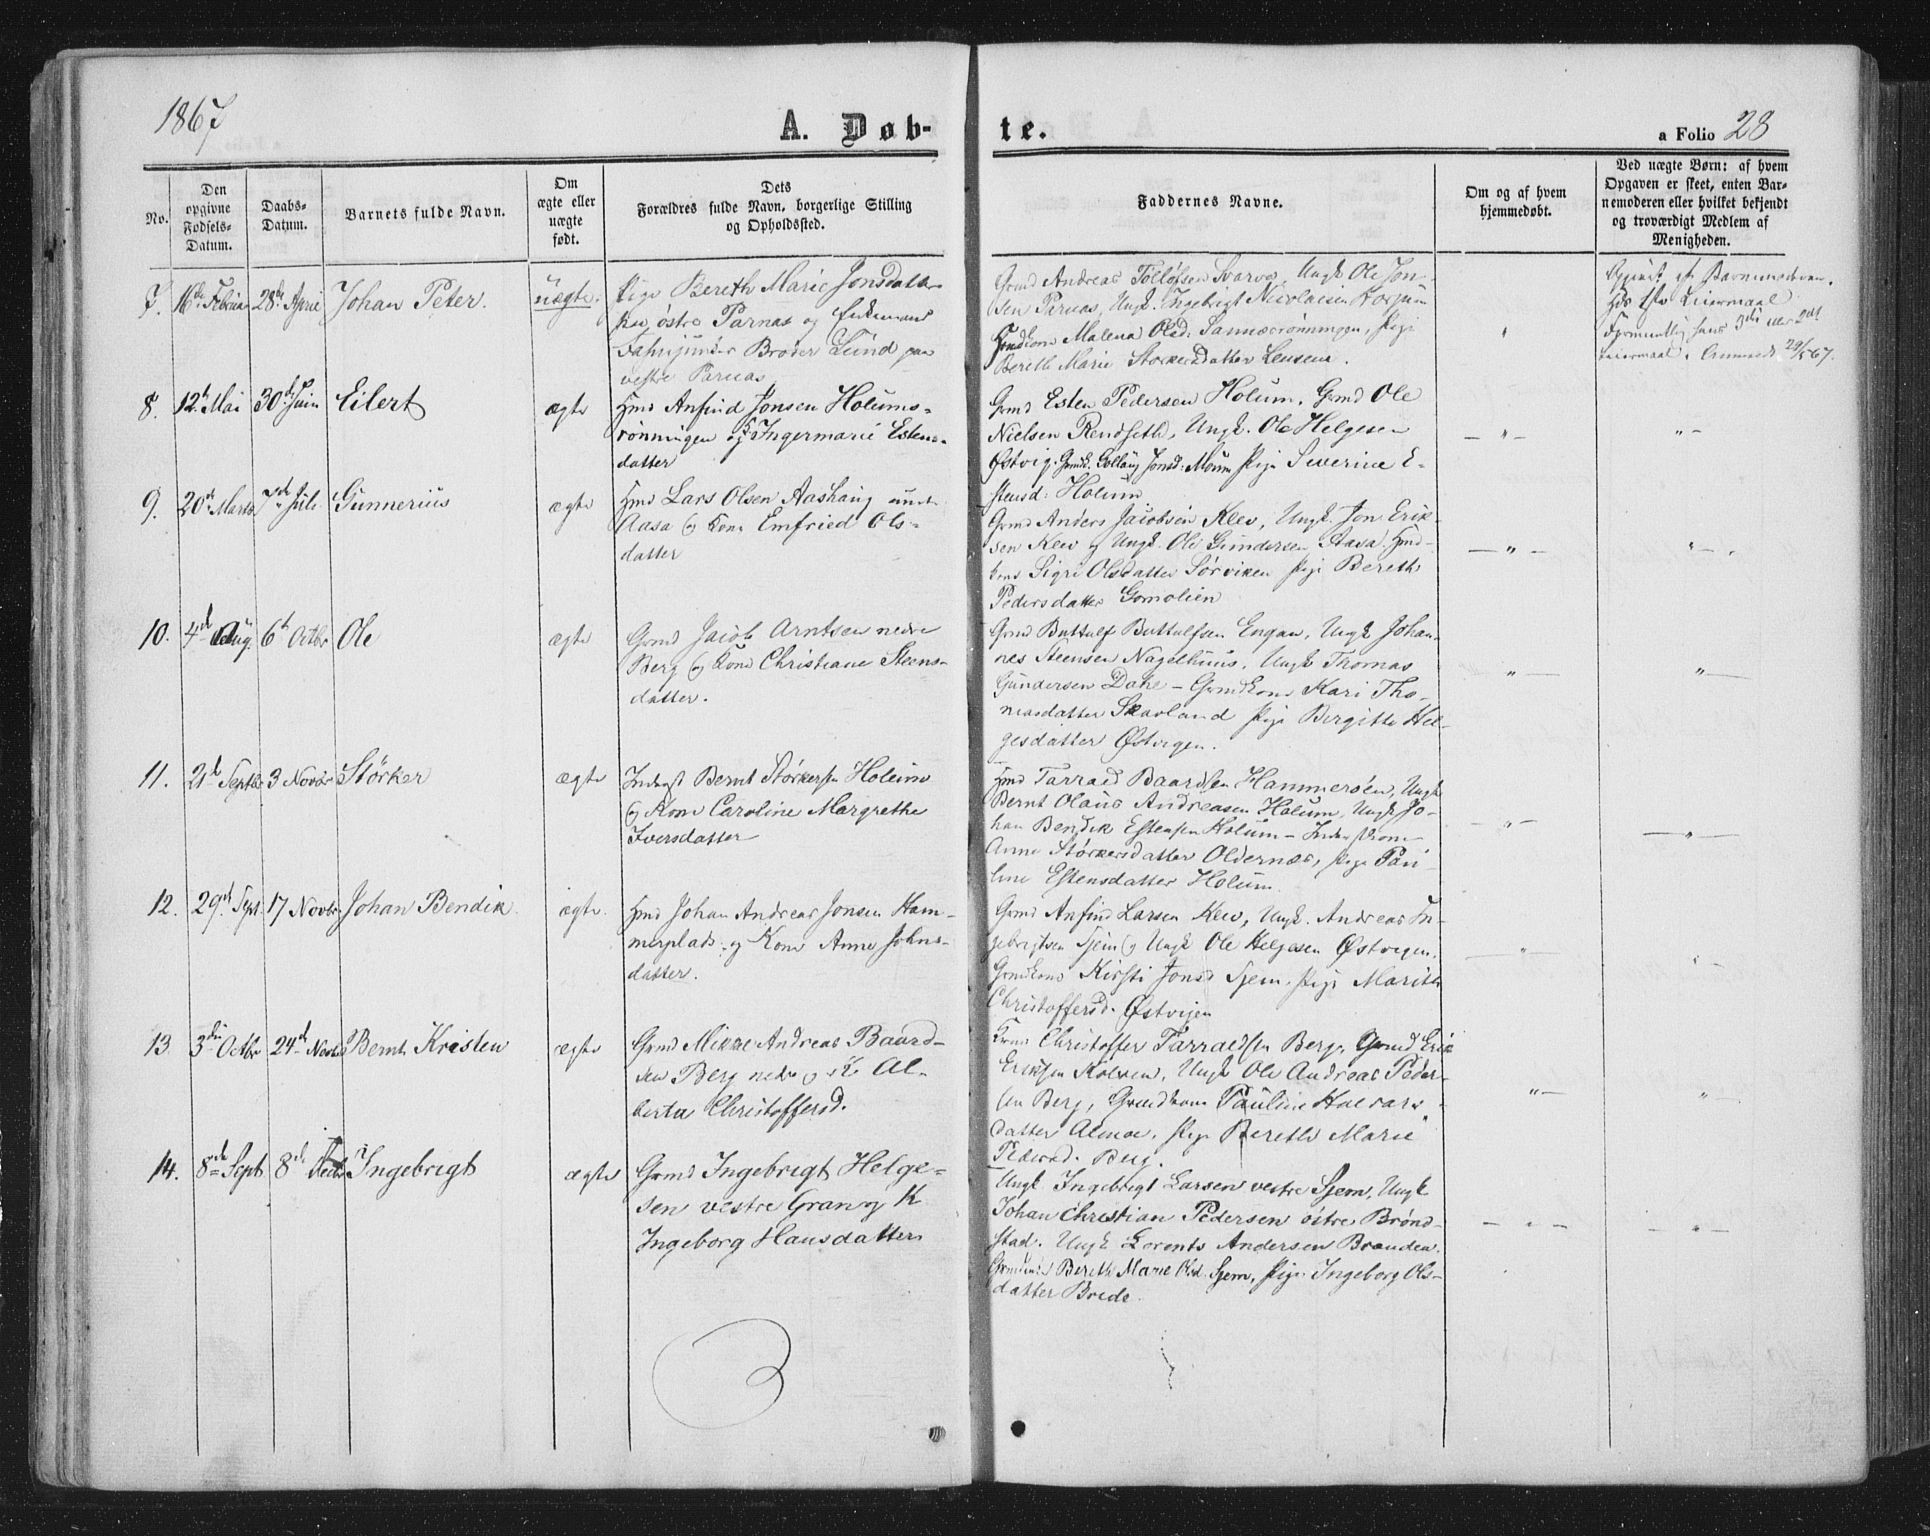 1867
A. Døb-
te.
a Folio 28
No.
Den opgivne Fødsels-Datum.
Daabs-Datum.
Barnets fulde Navn.
Om ægte eller uægte født.
Dets Forældres fulde Navn, borgerlige Stilling og Opholdssted.
Faddernes Navne.
Om og af hvem hjemmedøbt.
Ved uægte Børn: af hvem Opgaven er skeet, enten Barnemoderen eller hvilket bekjendt og troværdigt Medlem af Menigheden.
7. 16de Februar 28de April Johan Peter. uægte.
Pige Bereth Marie Jonsdatter
østre Parnas og Enkemand
Broder Lund paa
vestre Parnas
Gmd Andreas Svarva, Ungk Ole Jon-
sen Parnas, Ungk. Ingebrigt Nicolaisen
Malena Olsd. Sannesrønningen, Pige
Bereth Marie Størkersdatter
Opgivet af Barnemoderen.
Leiermaal
29/5 67.
8. 12te Mai 30te Juni Eilert ægte
Hmd Anfind Jonsen Holums-
rønningen og K Ingermarie Estens-
datter
Gmd Esten Pedersen Holum, Gmd Ole
Nielsen Rendseth, Ungk. Ole Helgesen
Østvig. Gmdk. Gollaug Jonsd: Moum Pige Severine E-
stensd: Holum
— " — " —
9. 20de Marts 7de Juli Gunnerius ægte
Hmd Lars Olsen Aashaug under
Aasa og Kone Emfried Ols-
datter
Gmd Anders Jacobsen Klev, Ungk. Jon Erik-
sen Klev og Ungk. Ole Gundersen Aasa. Hmd-
kone Sigri Olsdatter Sørviken Pige Bereth
Pedersdatter Gomolien
— " — " —
10. 4de Aug. 6te Octbr Ole ægte
Gmd Jacob Arntsen nedre
Berg og Kone Christiane Steens-
datter.
Gmd Buttulf Buttulfsen Engan, Ungk Johan-
nes Steensen Nagelhuus, Ungk Thomas
Gundersen Dahe — Gmdkone Kari Tho-
masdatter Skavland Pige Bergitte Hel-
gesdatter Østvigen.
" — " —
11. 21de Septbr 3 Novbr Størker ægte
Inderst Bernt Størkersen Holum
og Kone Caroline Margrethe
Iversdatter
Hmd Tarrald Baardsen Hammerøen, Ungk
Bernt Olaus Andreasen Holum, Ungk Jo-
han Bendik Estensen Holum — Inderstkone
Anne Størkersdatter Oldernæs, Pige Pau-
line Estensdatter Holum.
— " — — " —
12. 29de Sept. 17 Novbr Johan Bendik ægte.
Hmd Johan Andreas Jonsen Ham-
merplads. og Kone Anne Johns-
datter.
Gmd Anfind Larsen Klev, Ungk. Andreas In-
gebrigtsen Sjem og Ungk Ole Helgesen Østvigen.
Gmdkone Kirsti Jonsd Sjem, Pige Marith
Christoffersd. Østvigen
" — " —
13. 3die Octbr 24de Novbr Bernt Kristen ægte
Gmd Mikal Andreas Baard-
sen Berg nedre og K Al-
berta Christoffersd.
Christoffer Tarraldsen Berg, Gmd Erik
Eriksen Kolven, Ungk Ole Andreas Peder-
sen Berg, Gmdkone Pauline Halvars-
datter Almoe, Pige Bereth Marie
Pedersd. Berg.
" — " —
14. 8de Sept 8de Decbr Ingebrigt ægte
Gmd Ingebrigt Helge-
sen vestre Gran og K
Ingeborg Hansdatter
Ungk. Ingebrigt Larsen vestre Sjem, Ungk
Johan Christian Pedersen østre Brønd-
stad. Ungk Lorents Andersen Branden.
Bereth Marie Olsd. Sjem, Pige Ingeborg Ols-
datter Brede.
— " — — " —